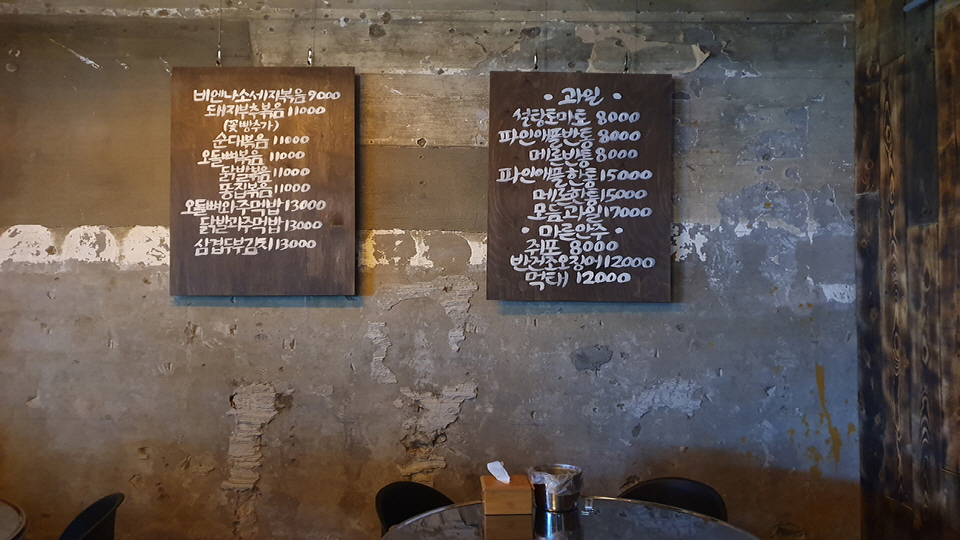 비엔나소세지볶음 9000
돼지부추볶음 11000
(꽃빵추가)
순대볶음 11000
오돌뼈볶음 11000
닭발볶음 11000
똥집볶음 11000
오돌뼈와주먹밥 13000
닭발과주먹밥 13000
삼겹두부김치 13000
• 과일 •
설탕토마토 8000
파인애플반통 8000
메론반통 8000
파인애플한통 15000
메론한통 15000
모듬과일 17000
• 마른안주 •
쥐포 8000
반건조오징어 12000
먹태 12000